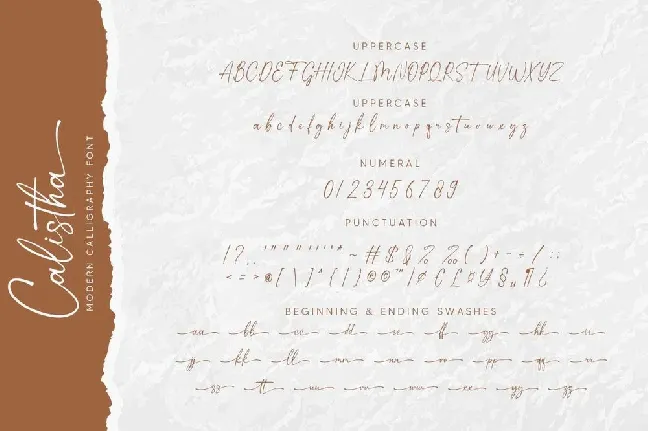 Calistha
MODERN CALLIGRAPHY FONT
UPPERCASE
ABCDEFGHIJKLMNOPQRSTUVWXYZ
UPPERCASE
abcdefghijklmnopqrstuvwxyz
NUMERAL
0123456789
PUNCTUATION
BEGINNING & ENDING SWASHES
aa bb cc dd ee ff gg hh ii
jj kk ll mm nn oo pp qq rr
tt uu vv ww xx yy zz